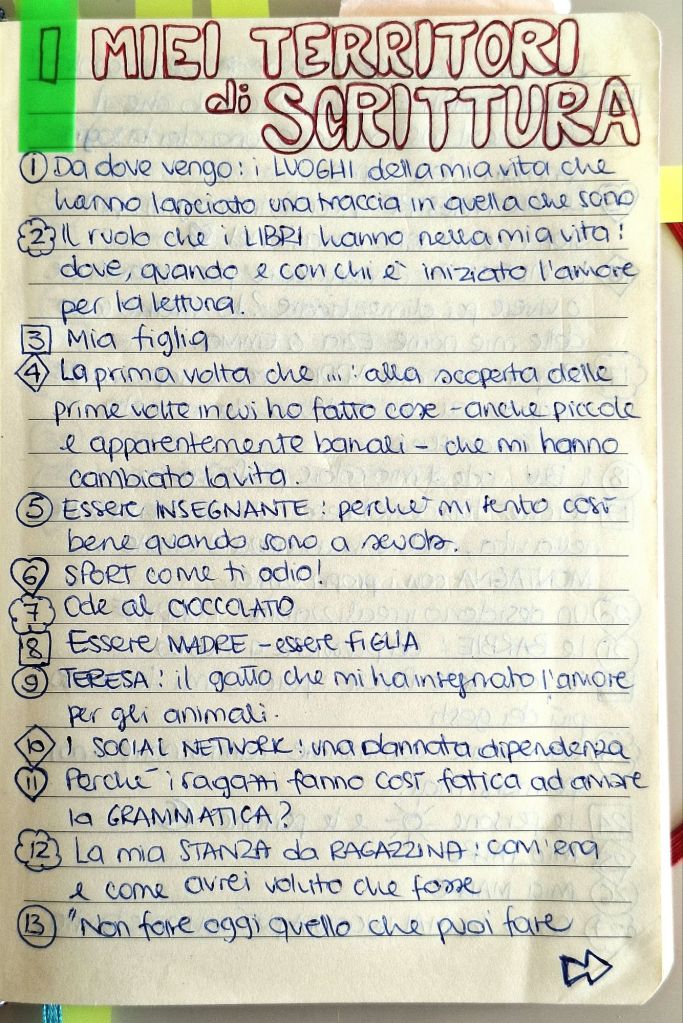 I MIEI TERRITORI
di SCRITTURA
1 Da dove vengo: i LUOGHI della mia vita che
hanno lasciato una traccia in quella che sono
2 Il ruolo che i LIBRI hanno nella mia vita:
dove, quando e con chi è iniziato l'amore
per la lettura.
3 Mia figlia
4 La prima volta che ...: alla scoperta delle
prime volte in cui ho fatto cose - anche piccole
e apparentemente banali - che mi hanno
cambiato la vita.
5 Essere INSEGNANTE: perché mi sento così
bene quando sono a scuola.
6 SPORT come ti odio!
7 Ode al CIOCCOLATO
8 Essere MADRE - essere FIGLIA
9 TERESA: il gatto che mi ha insegnato l'amore
per gli animali.
10 I SOCIAL NETWORK: una dannata dipendenza
11 Perché i ragazzi fanno così fatica ad amare
la GRAMMATICA?
12 La mia STANZA da RAGAZZINA: com'era
e come avrei voluto che fosse
13 "Non fare oggi quello che puoi fare